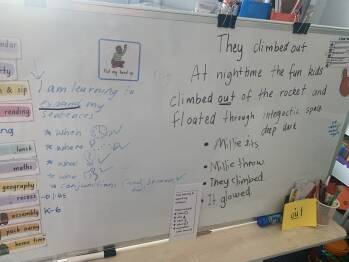 They climbed out
At nighttime the fun kids
climbed out of the rocket and
floated through intergactic space
deep dark
• Millie its
• Millie throw
• They climbed
• It glowed
Put my hand up
I am learning to
expand my
sentences
* when
* where
* what
* who
* conjunctions
K-6
& sip
reading
lunch
maths
geography
recess
assembly
pack away
home time
out